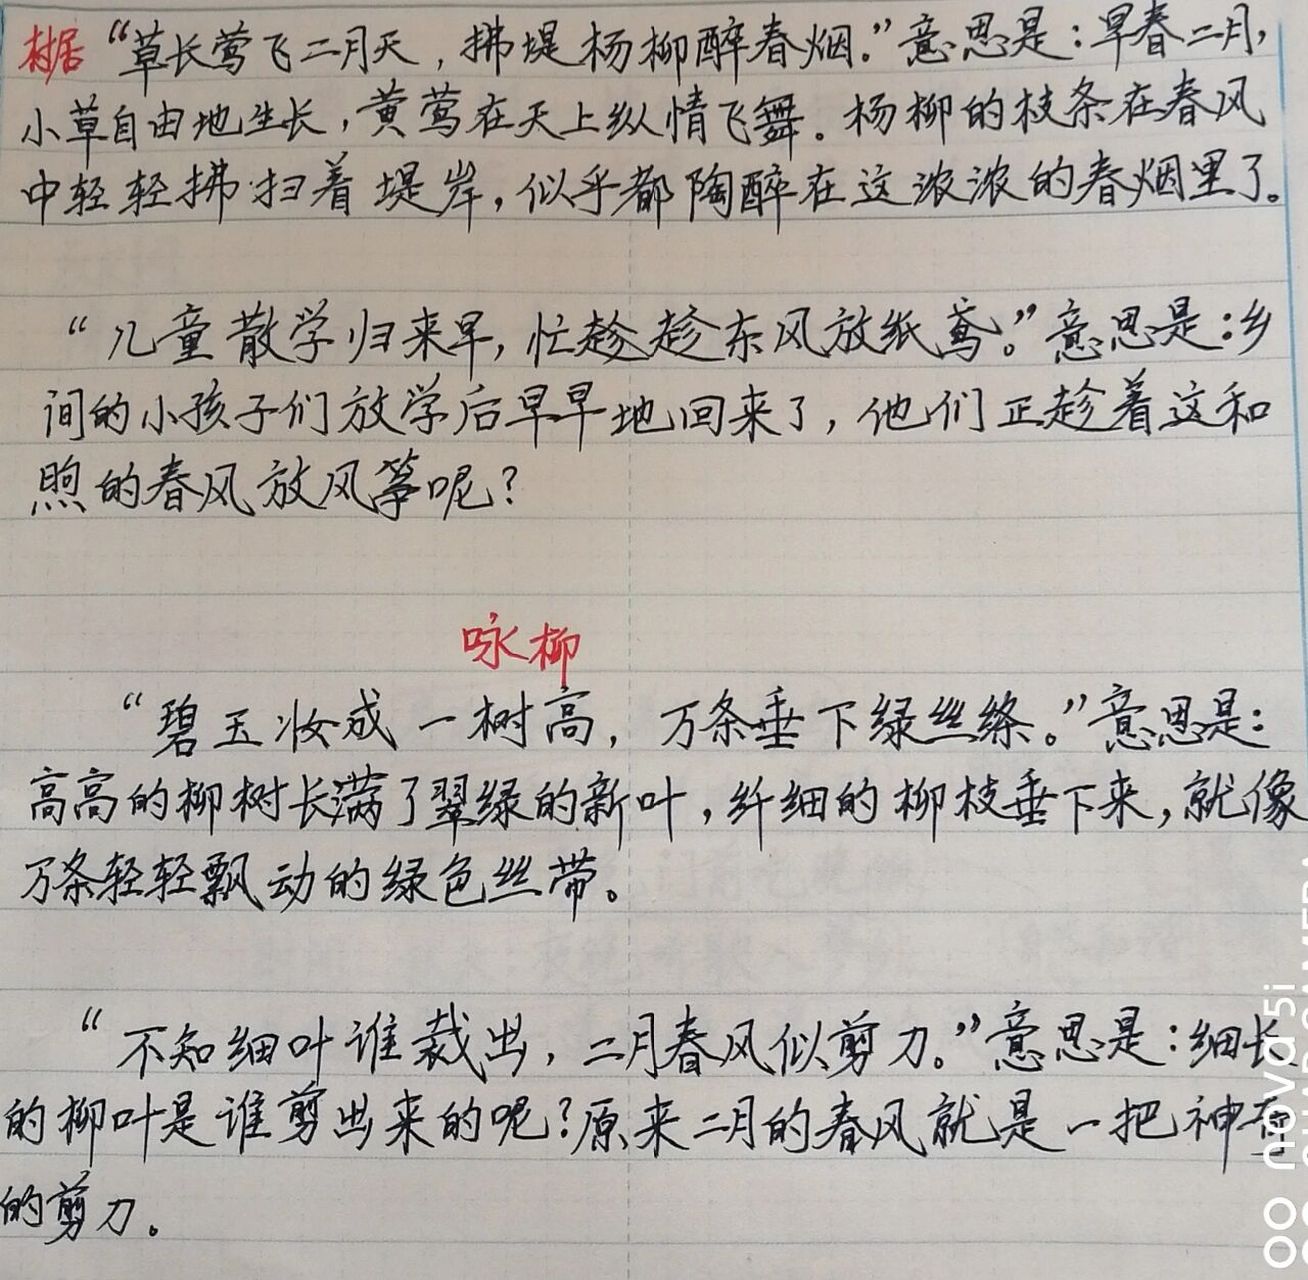 村居 “草长莺飞二月天，拂堤杨柳醉春烟。”意思是：早春二月，
小草自由地生长，黄莺在天上纵情飞舞。杨柳的枝条在春风
中轻轻拂扫着堤岸，似乎都陶醉在这浓浓的春烟里了。
“儿童散学归来早，忙趁趁东风放纸鸢。”意思是：乡
间的小孩子们放学后早早地回来了，他们正趁着这和
煦的春风放风筝呢？
咏柳
“碧玉妆成一树高，万条垂下绿丝绦。”意思是：
高高的柳树长满了翠绿的新叶，纤细的柳枝垂下来，就像
万条轻轻飘动的绿色丝带。
“不知细叶谁裁出，二月春风似剪刀。”意思是：细长
的柳叶是谁剪出来的呢？原来二月的春风就是一把神奇
的剪刀。
nova 5i